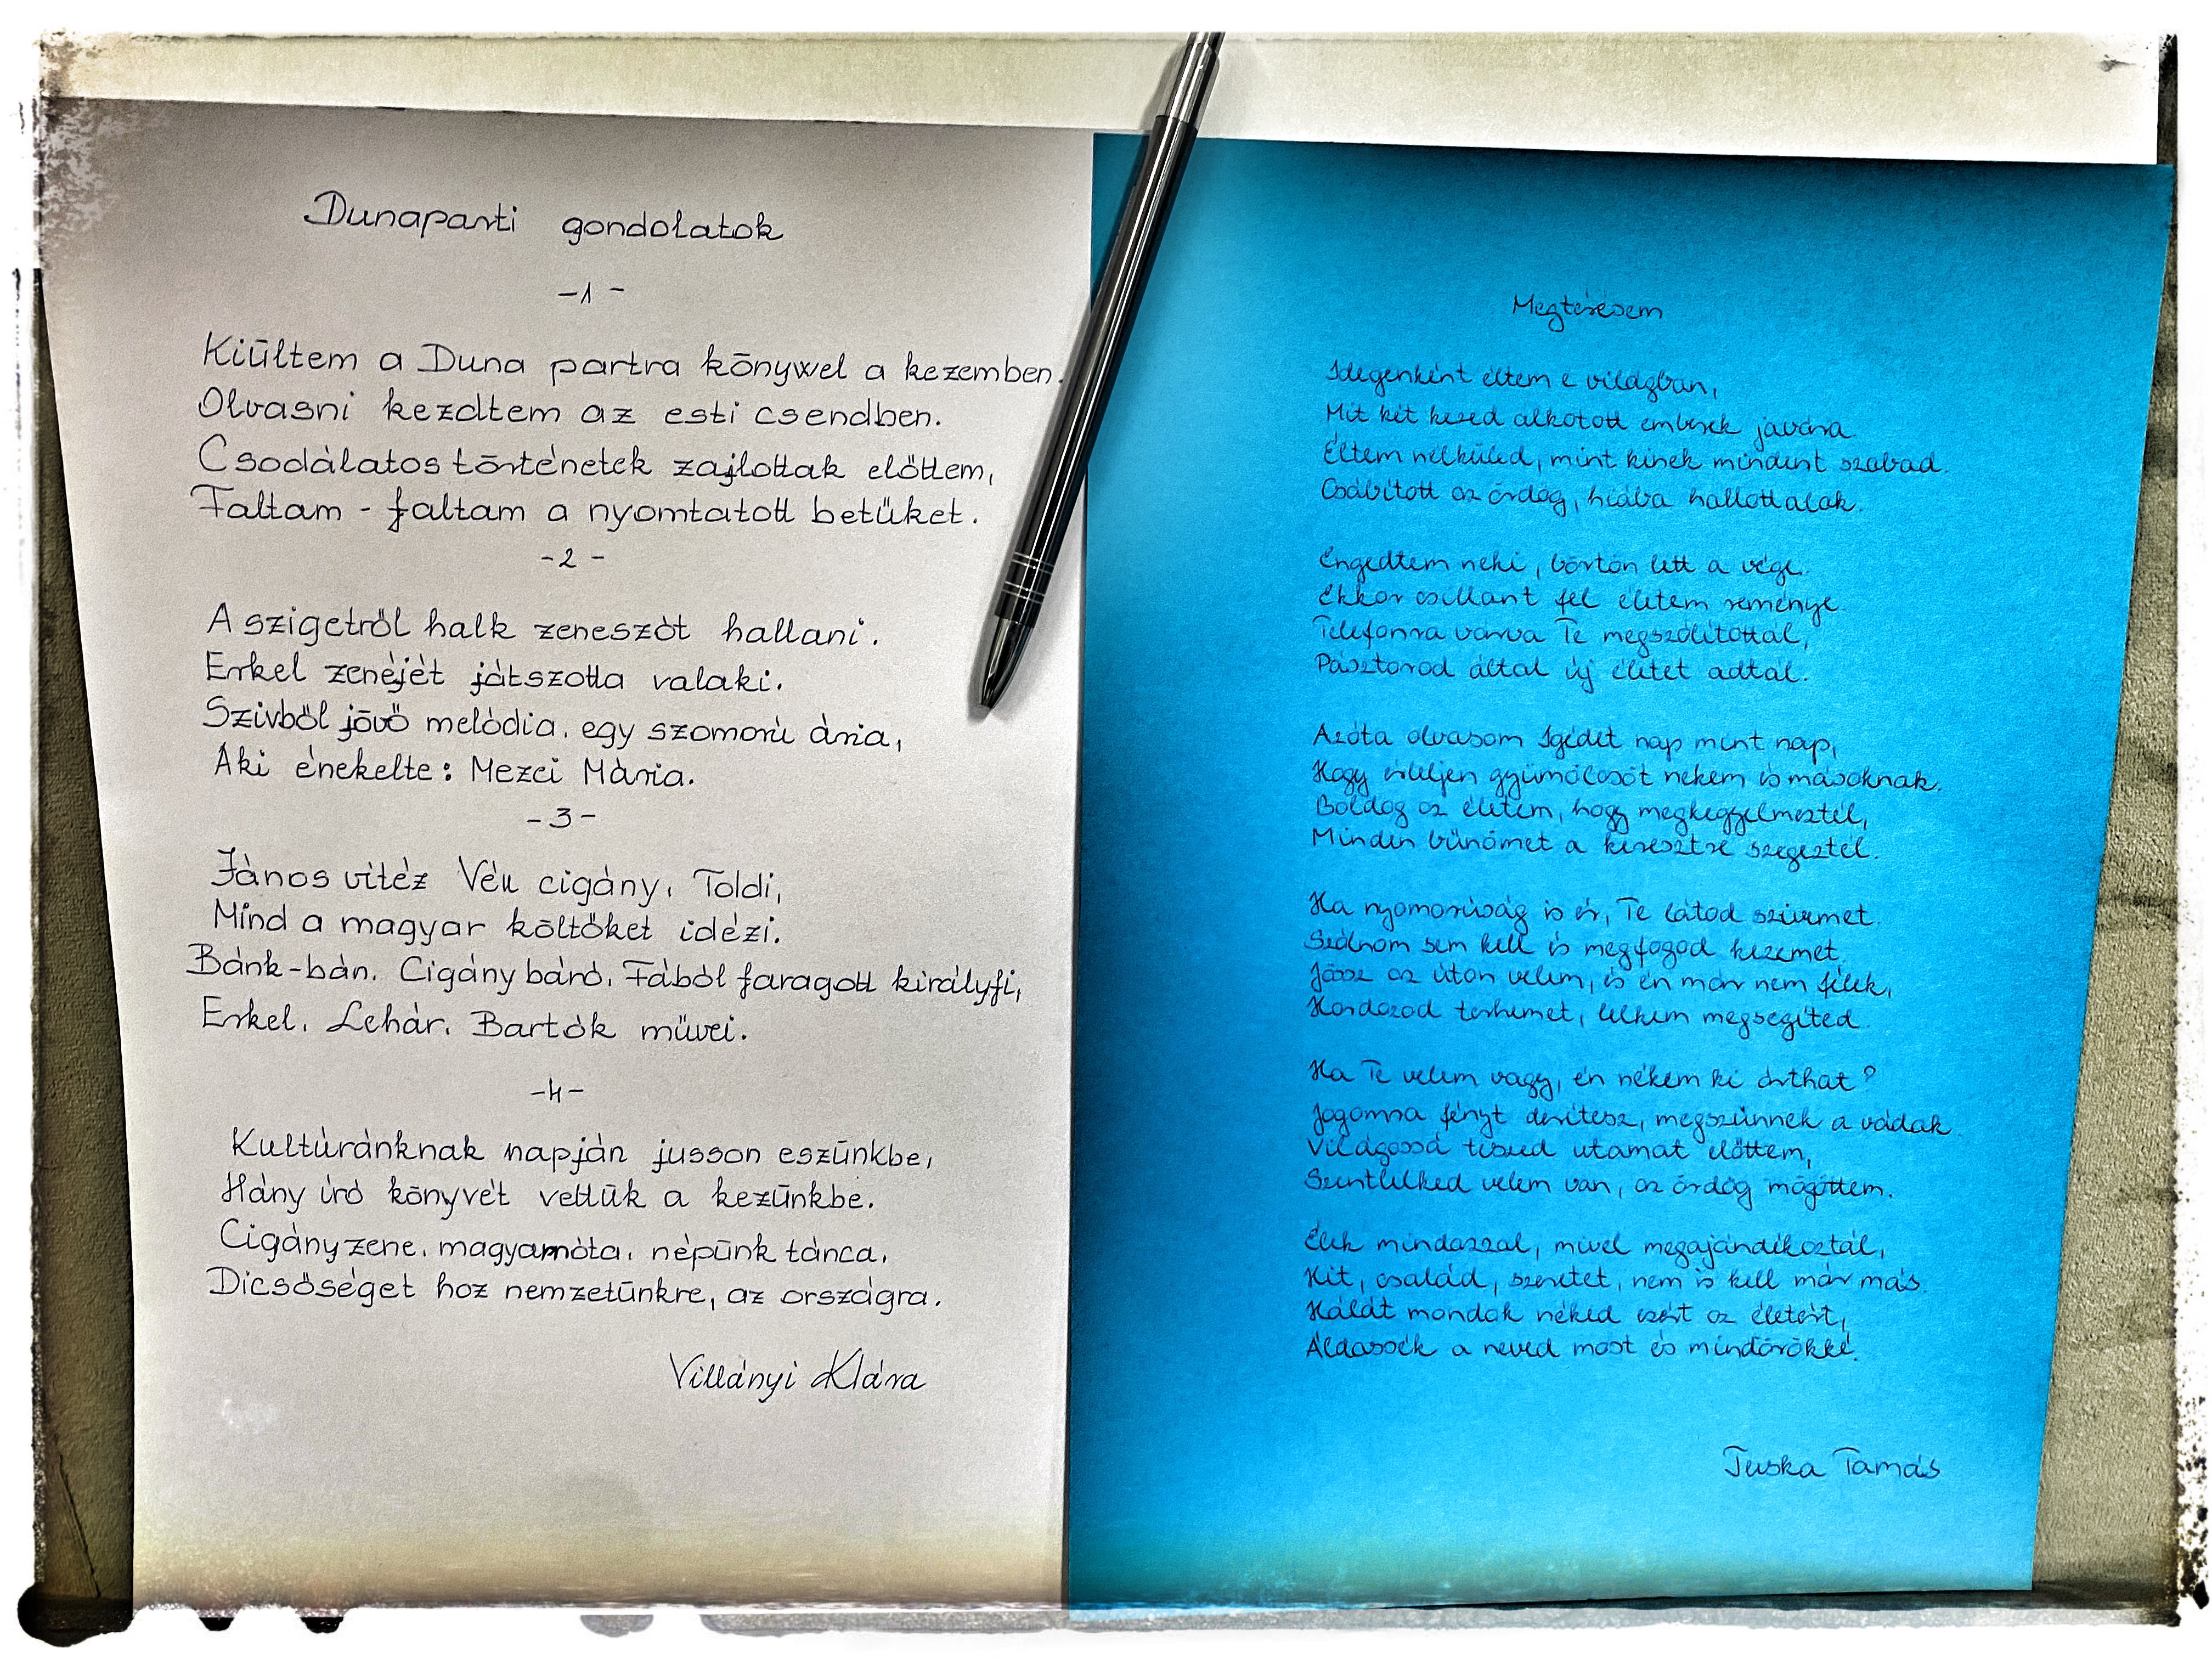 Dunaparti gondolatok
-1-
Kiültem a Duna partra könyvvel a kezemben.
Olvasni kezdtem az esti csendben.
Csodálatos történetek zajlottak előttem,
Faltam - faltam a nyomtatott betűket.
-2-
A szigetről halk zeneszót hallani.
Erkel zenéjét játszotta valaki.
Szivből jövő melódia, egy szomorú ária,
Aki énekelte: Mezei Mária.
-3-
János vitéz Vén cigány, Toldi,
Mind a magyar költőket idézi.
Bánk-bán, Cigány báró, Fából faragott királyfi,
Erkel, Lehár, Bartók művei.
-4-
Kultúránknak napján jusson eszünkbe,
Hány író könyvét vettük a kezünkbe.
Cigányzene, magyarnóta, népünk tánca,
Dicsőséget hoz nemzetünkre, az országra.
Villányi Klára
Megtérésem
Idegenként éltem e világban,
Mit két kezed alkotott emberek javára.
Éltem nélküled, mint kinek mindent szabad.
Csábított az ördög, hiába hallottalak.
Engedtem neki, börtön lett a vége.
Ekkor csillant fel életem reménye
Telefonra várva Te megszólítottál,
Pásztorod által új életet adtál.
Azóta olvasom Igédet nap mint nap,
Hogy érleljen gyümölcsöt nekem és másoknak.
Boldog az életem, hogy megkegyelmeztél,
Minden bűnömet a keresztre szegeztél.
Ha nyomorúság is ér, Te látod szivemet.
Szólnom sem kell és megfogod kezemet.
Jössz az úton velem, és én már nem félek,
Hordozod terhemet, lelkem megsegíted.
Ha Te velem vagy, én nékem ki árthat?
Jogomra fényt derítesz, megszűnnek a vádak.
Világossá teszed utamat előttem,
Szentlelked velem van, az ördög mögöttem.
Élek mindazzal, mivel megajándékoztál,
Hit, család, szeretet, nem is kell már más.
Hálát mondok néked ezért az életért,
Áldassék a neved most és mindörökké.
Juska Tamás